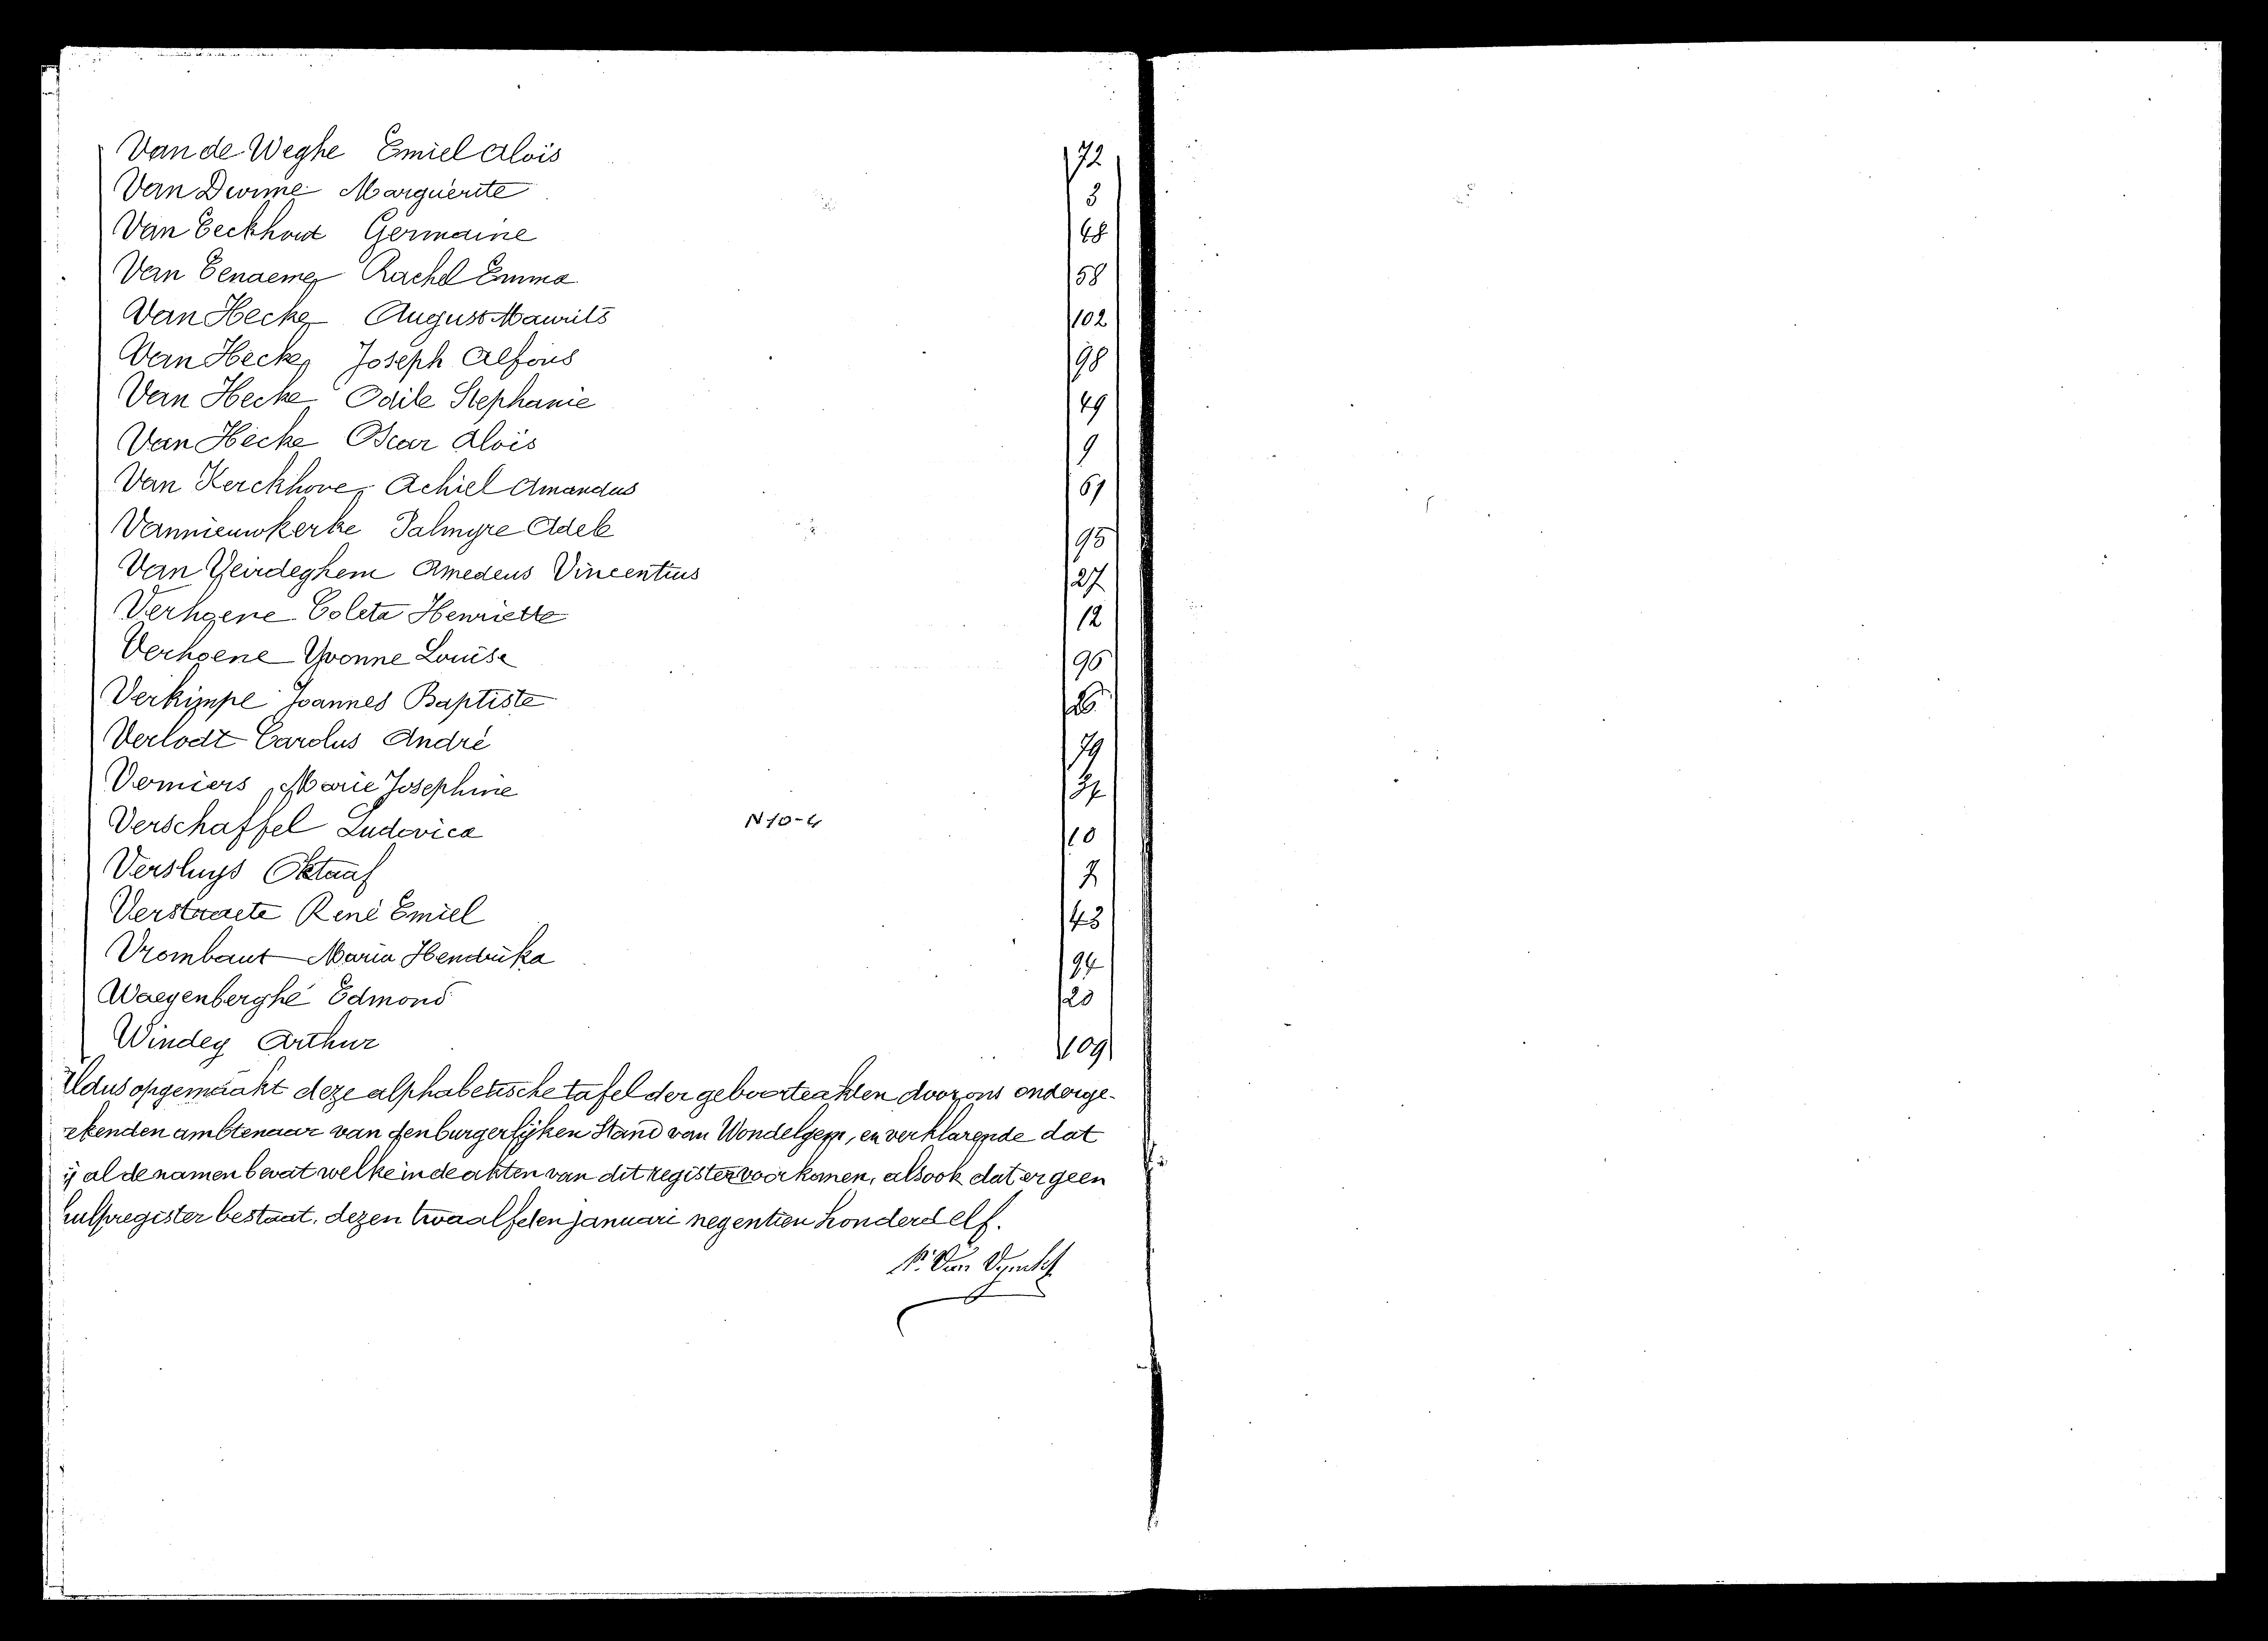 Van de Weghe Emiel Alois 72
Van Durme Marguerite 3
Van Eeckhout Germaine 48
Van Eenaeme Rachel Emma 58
Van Hecke August Maurits 102
Van Hecke Joseph Alfons 98
Van Hecke Odile Stephanie 49
Van Hecke Oscar Alois 9
Van Kerckhove Achiel Amandus 61
Vannieuwkerke Palmyre Adele 95
Van Yeirdeghem Amedeus Vincentius 27
Verhoene Coleta Henriette 12
Verhoene Yvonne Louise 96
Verkimpe Joannes Baptiste 26
Verlodt Carolus André 79
Verniers Marie Josephine 37
Verschaffel Ludovica N 10-4 10
Versluys Oktaaf 7
Verstraete René Emiel 43
Vrombaut Maria Hendrika 94
Waegenberghe Edmond 20
Windey Arthur 109
Aldus opgemaakt deze alphabetische tafel der geboorteakten door ons onderge-
ekenden ambtenaar van den burgerlijken Stand van Wondelgem, en verklarende dat
ij al de namen bevat welke in de akten van dit register voorkomen, alsook dat er geen
hulpregister bestaat, dezen twaalfden januari negentien honderd elf.